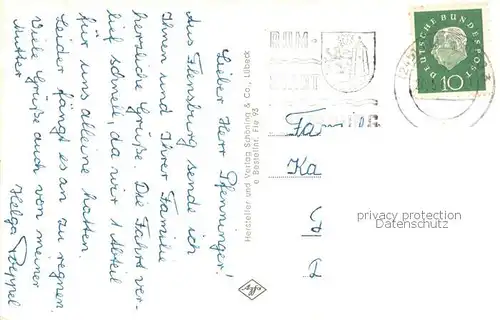 Lieber Herr Pfenninger!
Aus Flensburg sende ich
Ihnen und Ihrer Familie
herzliche Grüße. Die Fahrt ver-
lief schnell, da wir 1 Abteil
für uns alleine hatten.
Leider fängt es an zu regnen.
Viele Grüße auch von meiner
Mutter
Helga Poeppel
Hersteller und Verlag Schöning & Co., Lübeck
Bestellnr. Fle 93
RUM-
STADT
DEUTSCHE BUNDESPOST
10
Familie
Ka
privacy protection
Datenschutz
Agfa